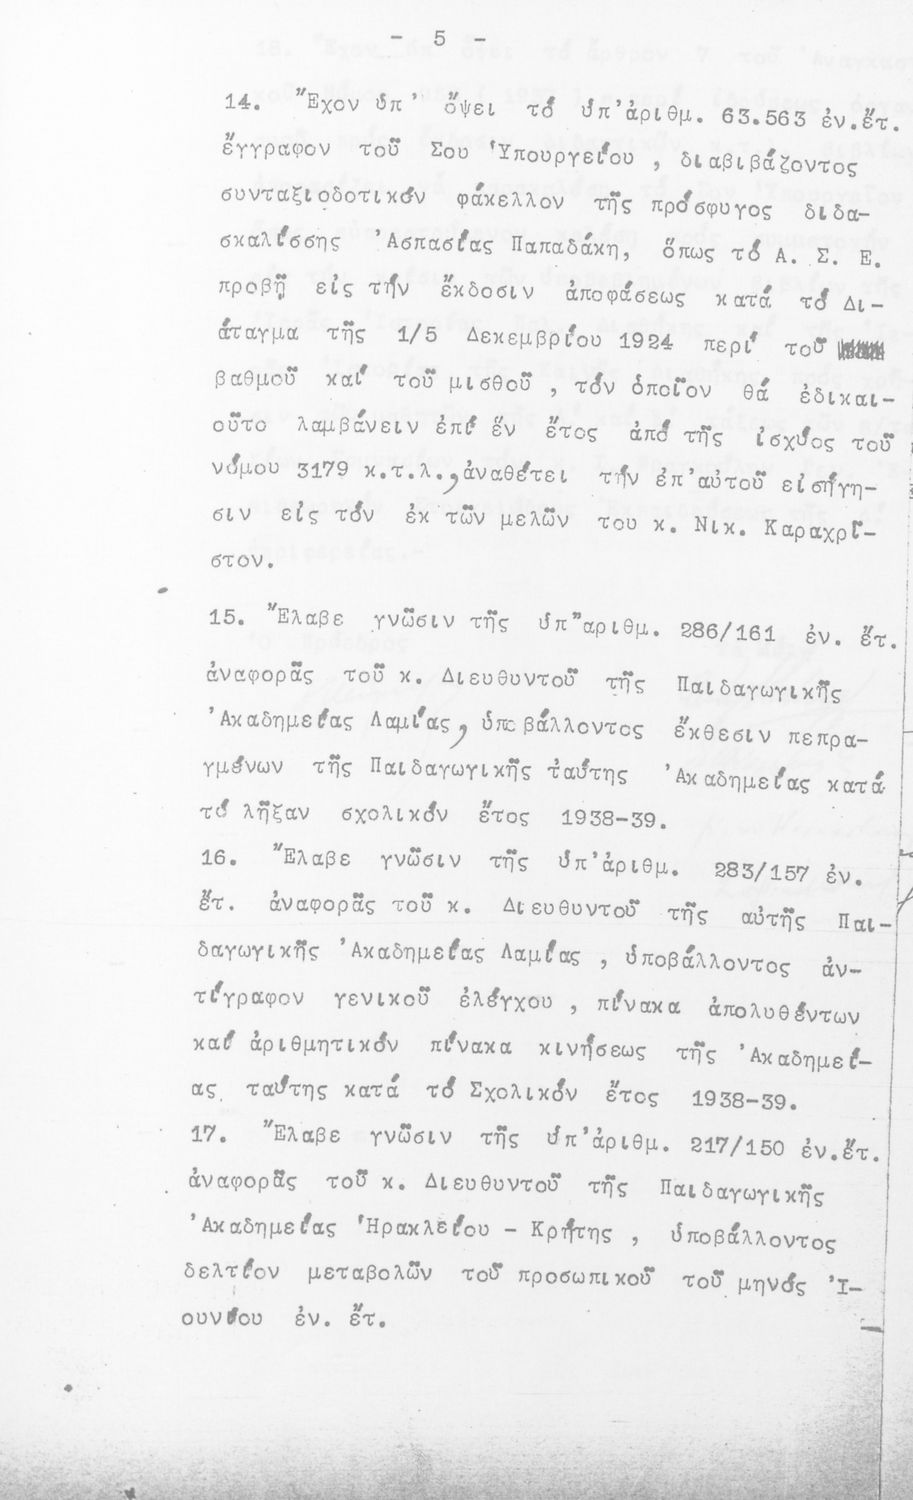 - 5 -
14. Ἔχον ὑπ' ὄψει τό ὑπ' ἀριθμ. 63.563 ἐν.ἔτ.
ἔγγραφον τοῦ Σου Ὑπουργείου, διαβιβάζοντος
συνταξιοδοτικόν φάκελλον τῆς πρόσφυγος διδα-
σκαλίσσης Ἀσπασίας Παπαδάκη, ὅπως τό Α. Σ. Ε.
προβῇ εἰς τήν ἔκδοσιν ἀποφάσεως κατά τό Δι-
άταγμα τῆς 1/5 Δεκεμβρίου 1924 περί τοῦ
βαθμοῦ καί τοῦ μισθοῦ, τόν ὁποῖον θά ἐδικαι-
οῦτο λαμβάνειν ἐπί ἕν ἔτος ἀπό τῆς ἰσχύος τοῦ
νόμου 3179 κ.τ.λ., ἀναθέτει τήν ἐπ' αὐτοῦ εἰσήγη-
σιν εἰς τόν ἐκ τῶν μελῶν του κ. Νικ. Καραχρῖ-
στον.
15. Ἔλαβε γνῶσιν τῆς ὑπ" αριθμ. 286/161 ἐν. ἔτ.
ἀναφορᾶς τοῦ κ. Διευθυντοῦ τῆς Παιδαγωγικῆς
Ἀκαδημείας Λαμίας, ὑποβάλλοντος ἔκθεσιν πεπρα-
γμένων τῆς Παιδαγωγικῆς ταύτης Ἀκαδημείας κατά
τό λῆξαν σχολικόν ἔτος 1938-39.
16. Ἔλαβε γνῶσιν τῆς ὑπ' ἀριθμ. 283/157 ἐν.
ἔτ. ἀναφορᾶς τοῦ κ. Διευθυντοῦ τῆς αὐτῆς Παι-
δαγωγικῆς Ἀκαδημείας Λαμίας, ὑποβάλλοντος ἀν-
τίγραφον γενικοῦ ἐλέγχου, πίνακα ἀπολυθέντων
καί ἀριθμητικόν πίνακα κινήσεως τῆς Ἀκαδημεί-
ας ταύτης κατά τό Σχολικόν ἔτος 1938-39.
17. Ἔλαβε γνῶσιν τῆς ὑπ' ἀριθμ. 217/150 ἐν.ἔτ.
ἀναφορᾶς τοῦ κ. Διευθυντοῦ τῆς Παιδαγωγικῆς
Ἀκαδημείας Ἡρακλείου - Κρήτης, ὑποβάλλοντος
δελτίον μεταβολῶν τοῦ προσωπικοῦ τοῦ μηνός Ἰ-
ουνίου ἐν. ἔτ.